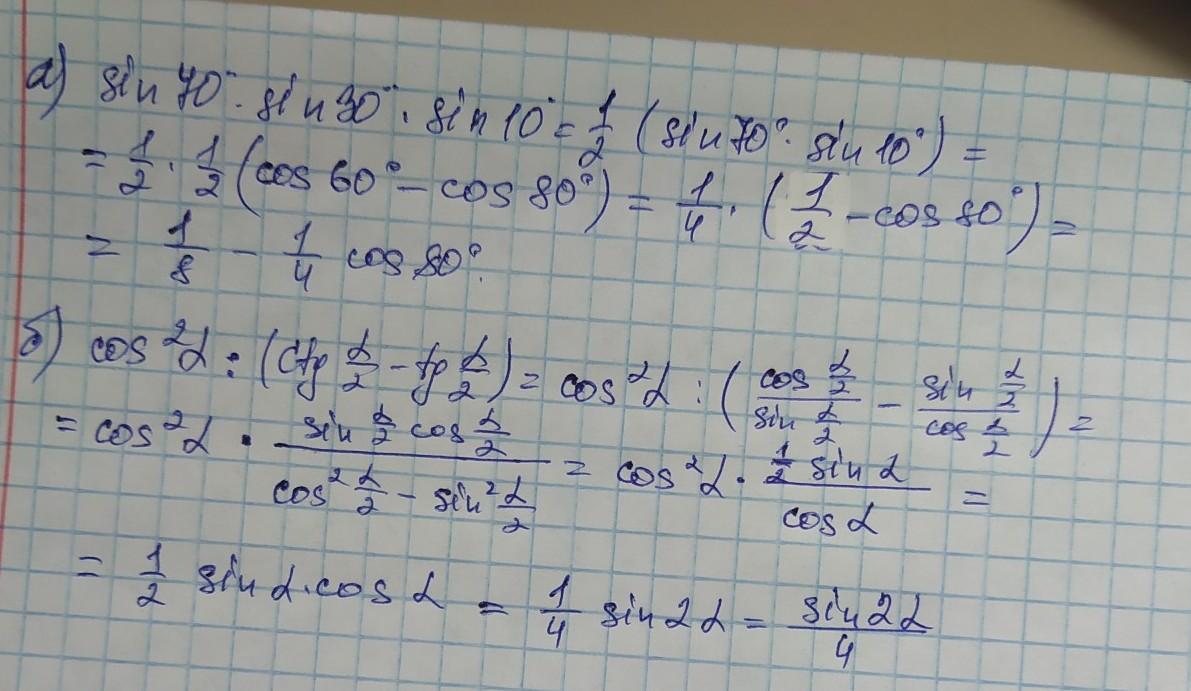 а) sin 70° · sin 30° · sin 10° = 1/2 (sin 70° · sin 10°) =
= 1/2 · 1/2 (cos 60° – cos 80°) = 1/4 · (1/2 – cos 80°) =
= 1/8 – 1/4 cos 80°.
б) cos²α : (ctg α/2 – tg α/2) = cos²α : (cos α/2 / sin α/2 – sin α/2 / cos α/2) =
= cos²α · (sin α/2 cos α/2) / (cos² α/2 – sin² α/2) = cos²α · (1/2 sin α) / cos α =
= 1/2 sin α · cos α = 1/4 sin 2α = sin 2α / 4